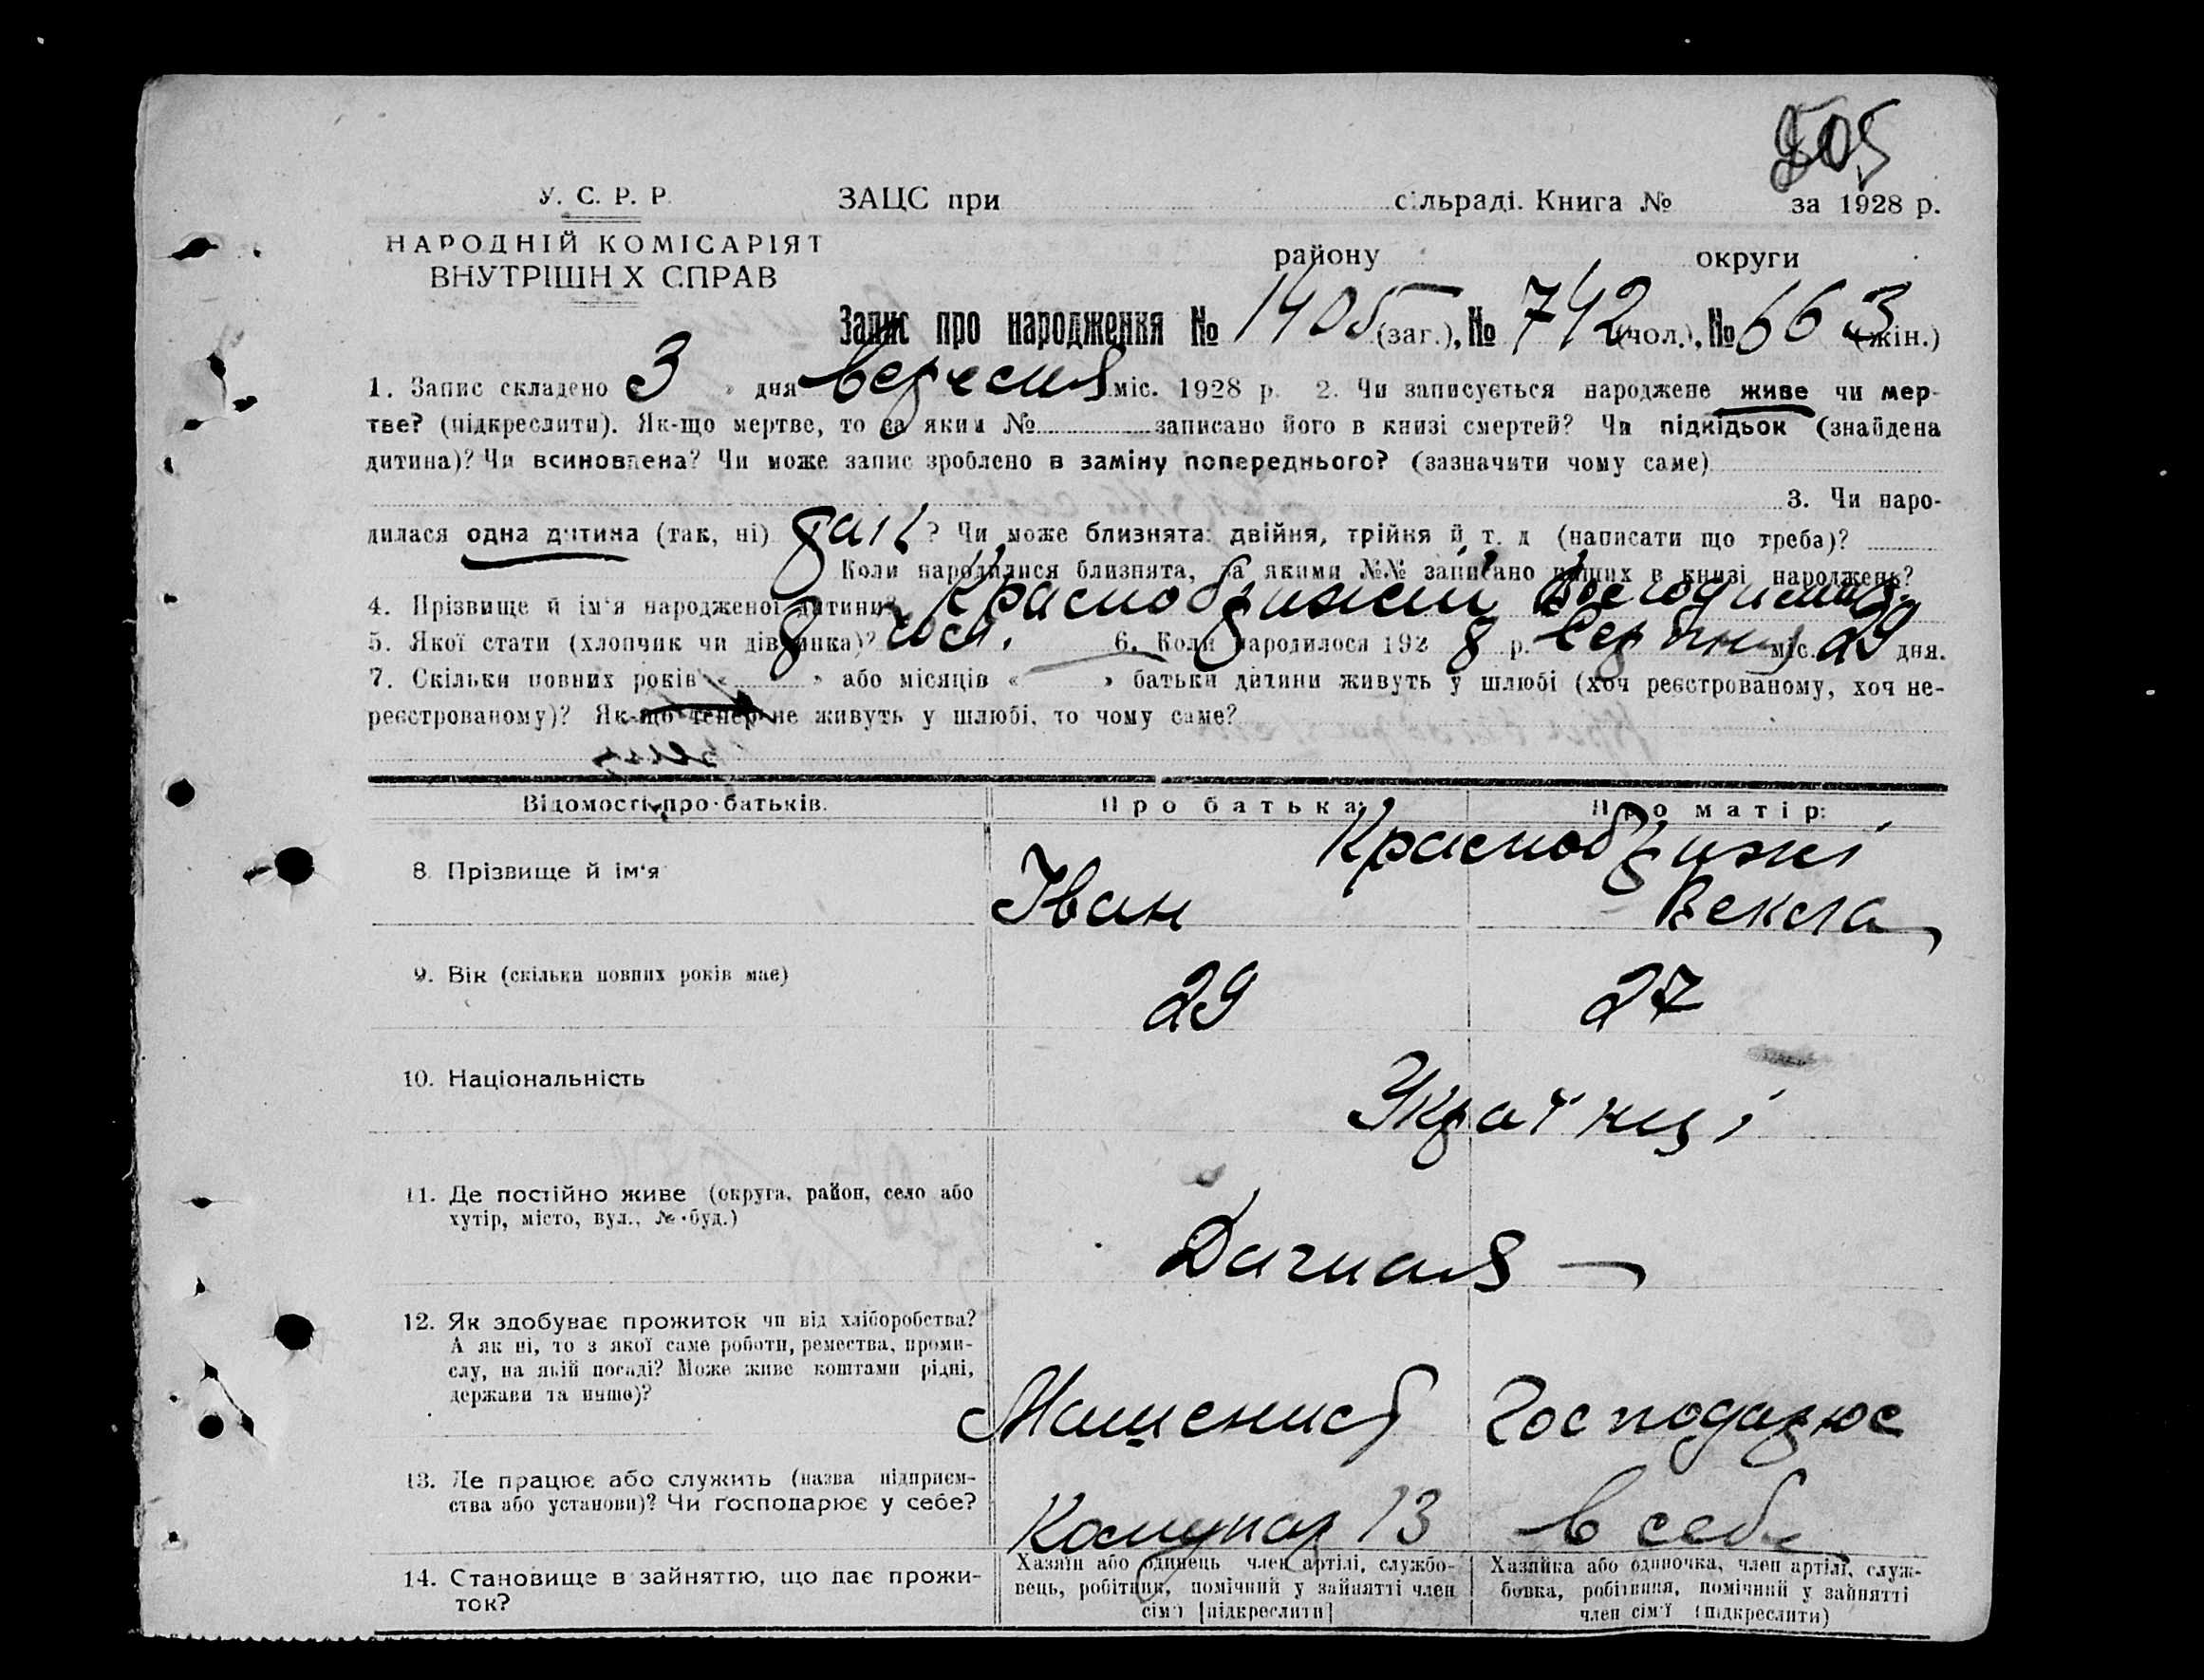 205
У. С. Р. Р.
ЗАЦС при сільраді. Книга № за 1928 р.
НАРОДНІЙ КОМІСАРІЯТ
ВНУТРІШНІХ СПРАВ
району округи
Запис про народження № 1405 (заг.), № 742 (чол.), № 663 (жін.)
1. Запис складено 3 » дня вересня міс. 1928 р. 2. Чи записується народжене живе чи мер-
тве? (підкреслити). Як-що мертве, то за яким № записано його в книзі смертей? Чи підкідьок (знайдена
дитина)? Чи всиновлена? Чи може запис зроблено в заміну попереднього? (зазначити чому саме)
3. Чи наро-
дилася одна дитина (так, ні) ? Чи може близнята: двійня, трійня й т. д (написати що треба)?
Коли народилися близнята, за якими №№ записано інших в книзі народжень?
4. Прізвище й ім'я народженої дитини?
5. Якої стати (хлопчик чи дівчинка)? 6. Коли народилося 192 8 р. Серпня міс. 29 дня.
7. Скільки повних років « » або місяців « » батьки дитини живуть у шлюбі (хоч реєстрованому, хоч не-
реєстрованому)? Як-що тепер не живуть у шлюбі, то чому саме?
Відомості про батьків. Про батька: Про матір:
8. Прізвище й ім'я Іван
9. Вік (скільки повних років має) 29 27
10. Національність Українці
11. Де постійно живе (округа, район, село або
хутір, місто, вул., № буд.)
Дачная
12. Як здобуває прожиток чи від хліборобства?
А як ні, то з якої саме роботи, ремества, проми-
слу, на якій посаді? Може живе коштами рідні,
держави та инше)?
Машенист Господарює
13. Де працює або служить (назва підприєм-
ства або установи)? Чи господарює у себе?
Комунар 13 в себе
14. Становище в зайняттю, що дає прожи-
ток?
Хазяїн або одинець член артілі, службо-
вець, робітник, помічний у зайнятті член
сім'ї [підкреслити]
Хазяйка або одиночка, член артілі, служ-
бовка, робітниця, помічний у зайнятті
член сім'ї (підкреслити)